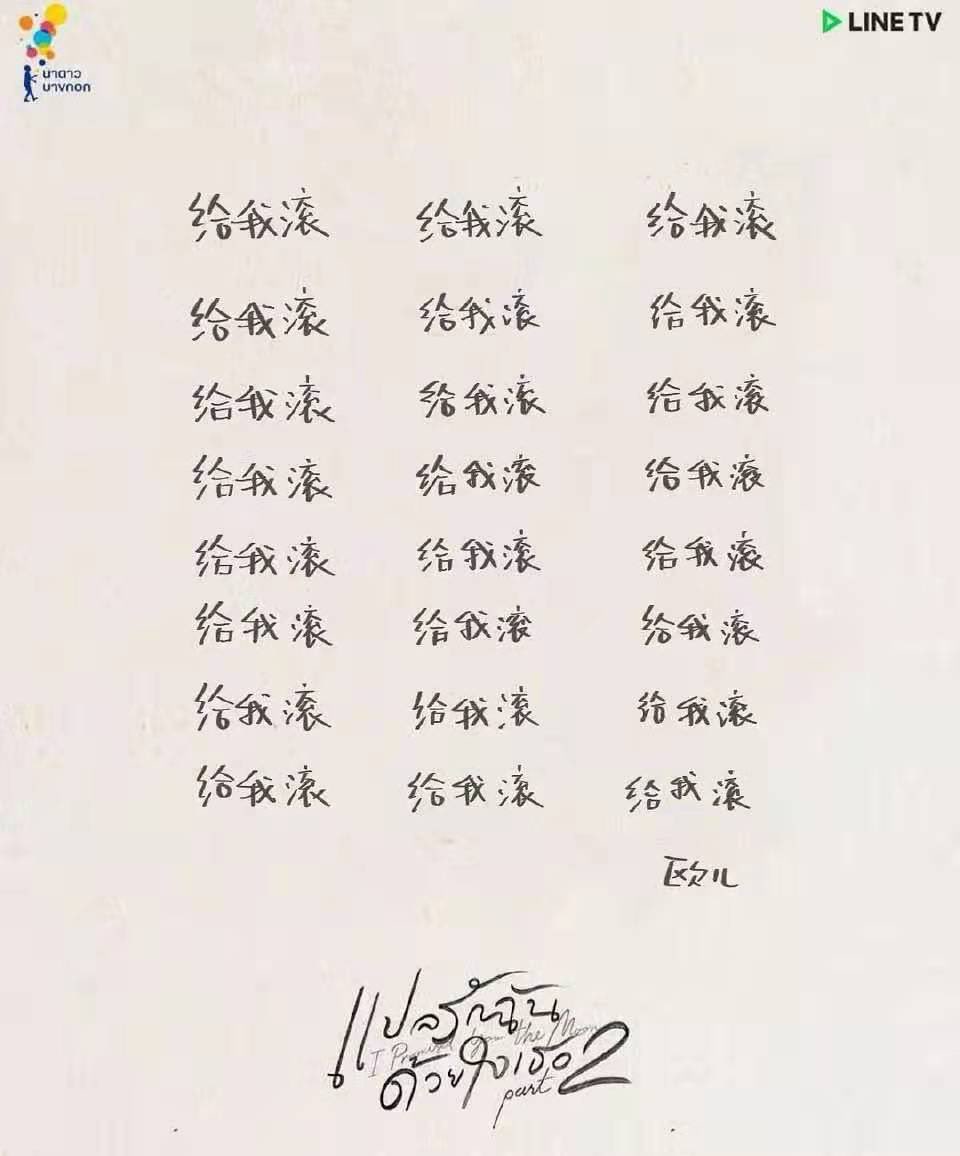 นาดาว
บางกอก
LINE TV
给我滚 给我滚 给我滚
给我滚 给我滚 给我滚
给我滚 给我滚 给我滚
给我滚 给我滚 给我滚
给我滚 给我滚 给我滚
给我滚 给我滚 给我滚
给我滚 给我滚 给我滚
给我滚 给我滚 给我滚
欧儿
แปลรักฉัน
I Promised you the Moon
ด้วยใจเธอ 2
part